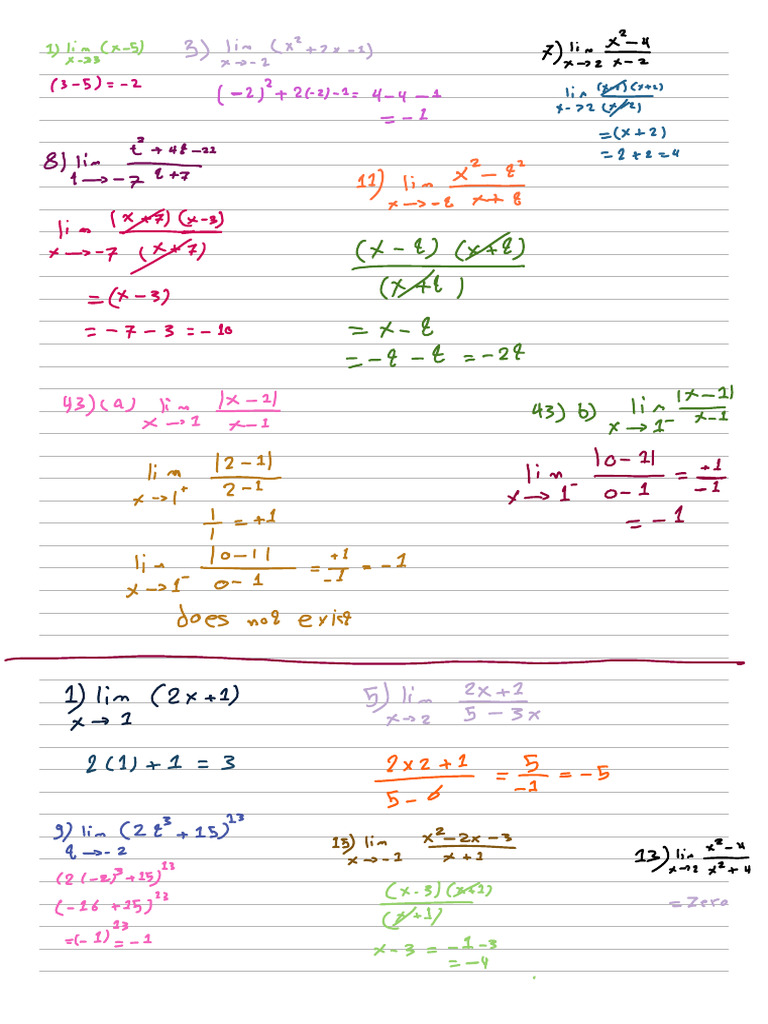 1) lim (x-5)
x→3
(3-5) = -2
3) lim (x² + 2x - 1)
x→-2
(-2)² + 2(-2) - 1 = 4 - 4 - 1
= -1
7) lim x² - 4 / x - 2
x→2
lim (x-2)(x+2) / (x-2)
x→2
= (x+2)
= 2 + 2 = 4
8) lim t² + 4t - 21 / t + 7
t→-7
lim (x+7)(x-3) / (x+7)
x→-7
= (x-3)
= -7 - 3 = -10
11) lim x² - t² / x + t
x→-t
(x - t)(x + t) / (x + t)
= x - t
= -t - t = -2t
43)(a) lim |x-1| / x-1
x→1
lim |2-1| / 2-1
x→1⁺
1/1 = +1
lim |0-1| / 0-1 = +1/-1 = -1
x→1⁻
does not exist
43) b) lim |x-1| / x-1
x→1⁻
lim |0-1| / 0-1 = +1/-1
x→1⁻
= -1
1) lim (2x+1)
x→1
2(1) + 1 = 3
5) lim 2x+1 / 5-3x
x→2
2x2+1 / 5-6 = 5/-1 = -5
9) lim (2t³ + 15)¹³
t→-2
(2(-2)³ + 15)¹³
(-16 + 15)¹³
= (-1)¹³ = -1
15) lim x² - 2x - 3 / x + 1
x→-1
(x-3)(x+1) / (x+1)
x - 3 = -1 - 3
= -4
13) lim x² - 4 / x² + 4
x→2
= Zero